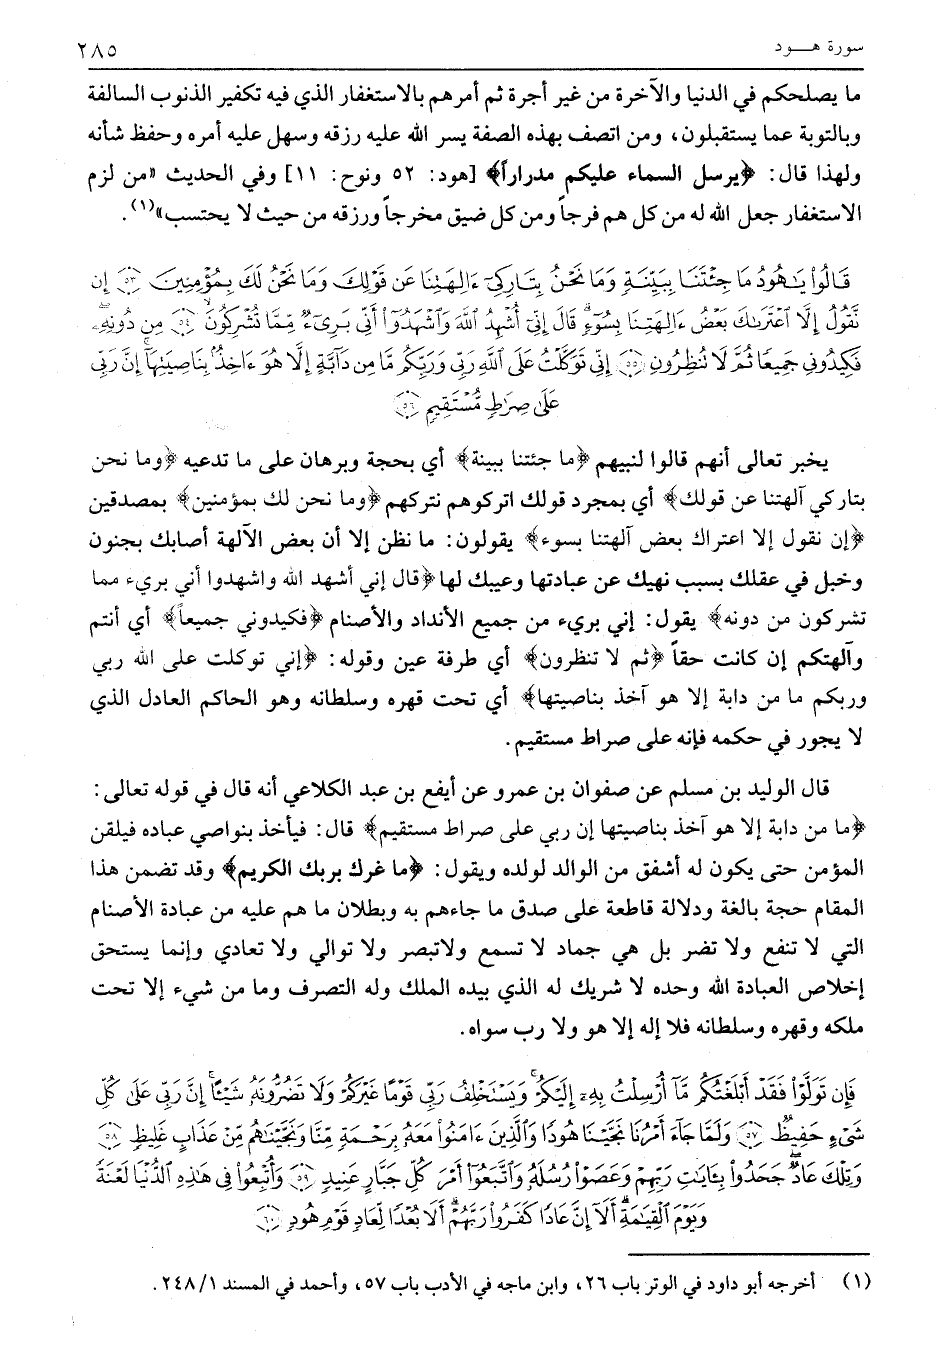 سورة هـــود
٢٨٥
ما يصلحكم في الدنيا والآخرة من غير أجرة ثم أمرهم بالاستغفار الذي فيه تكفير الذنوب السالفة
وبالتوبة عما يستقبلون، ومن اتصف بهذه الصفة يسر الله عليه رزقه وسهل عليه أمره وحفظ شأنه
ولهذا قال: ﴿يرسل السماء عليكم مدراراً﴾ [هود: ٥٢ ونوح: ١١] وفي الحديث «من لزم
الاستغفار جعل الله له من كل هم فرجاً ومن كل ضيق مخرجاً ورزقه من حيث لا يحتسب»(١).
قَالُوا۟ يَٰهُودُ مَا جِئْتَنَا بِبَيِّنَةٍ وَمَا نَحْنُ بِتَارِكِىٓ ءَالِهَتِنَا عَن قَوْلِكَ وَمَا نَحْنُ لَكَ بِمُؤْمِنِينَ ﴿٥٣﴾ إِن
نَّقُولُ إِلَّا ٱعْتَرَىٰكَ بَعْضُ ءَالِهَتِنَا بِسُوٓءٍ ۗ قَالَ إِنِّىٓ أُشْهِدُ ٱللَّهَ وَٱشْهَدُوٓا۟ أَنِّى بَرِىٓءٌ مِّمَّا تُشْرِكُونَ ﴿٥٤﴾ مِن دُونِهِۦ ۖ
فَكِيدُونِى جَمِيعًا ثُمَّ لَا تُنظِرُونِ ﴿٥٥﴾ إِنِّى تَوَكَّلْتُ عَلَى ٱللَّهِ رَبِّى وَرَبِّكُم ۚ مَّا مِن دَآبَّةٍ إِلَّا هُوَ ءَاخِذٌۢ بِنَاصِيَتِهَآ ۚ إِنَّ رَبِّى
عَلَىٰ صِرَٰطٍ مُّسْتَقِيمٍ ﴿٥٦﴾
يخبر تعالى أنهم قالوا لنبيهم ﴿ما جئتنا ببينة﴾ أي بحجة وبرهان على ما تدعيه ﴿وما نحن
بتاركي آلهتنا عن قولك﴾ أي بمجرد قولك اتركوهم نتركهم ﴿وما نحن لك بمؤمنين﴾ بمصدقين
﴿إن نقول إلا اعتراك بعض آلهتنا بسوء﴾ يقولون: ما نظن إلا أن بعض الآلهة أصابك بجنون
وخبل في عقلك بسبب نهيك عن عبادتها وعيبك لها ﴿قال إني أشهد الله واشهدوا أني بريء مما
تشركون من دونه﴾ يقول: إني بريء من جميع الأنداد والأصنام ﴿فكيدوني جميعاً﴾ أي أنتم
وآلهتكم إن كانت حقاً ﴿ثم لا تنظرون﴾ أي طرفة عين وقوله: ﴿إني توكلت على الله ربي
وربكم ما من دابة إلا هو آخذ بناصيتها﴾ أي تحت قهره وسلطانه وهو الحاكم العادل الذي
لا يجور في حكمه فإنه على صراط مستقيم.
قال الوليد بن مسلم عن صفوان بن عمرو عن أيفع بن عبد الكلاعي أنه قال في قوله تعالى:
﴿ما من دابة إلا هو آخذ بناصيتها إن ربي على صراط مستقيم﴾ قال: فيأخذ بنواصي عباده فيلقن
المؤمن حتى يكون له أشفق من الوالد لولده ويقول: ﴿ما غرك بربك الكريم﴾ وقد تضمن هذا
المقام حجة بالغة ودلالة قاطعة على صدق ما جاءهم به وبطلان ما هم عليه من عبادة الأصنام
التي لا تنفع ولا تضر بل هي جماد لا تسمع ولاتبصر ولا توالي ولا تعادي وإنما يستحق
إخلاص العبادة الله وحده لا شريك له الذي بيده الملك وله التصرف وما من شيء إلا تحت
ملكه وقهره وسلطانه فلا إله إلا هو ولا رب سواه.
فَإِن تَوَلَّوْا۟ فَقَدْ أَبْلَغْتُكُم مَّآ أُرْسِلْتُ بِهِۦٓ إِلَيْكُمْ ۚ وَيَسْتَخْلِفُ رَبِّى قَوْمًا غَيْرَكُمْ وَلَا تَضُرُّونَهُۥ شَيْـًٔا ۚ إِنَّ رَبِّى عَلَىٰ كُلِّ
شَىْءٍ حَفِيظٌ ﴿٥٧﴾ وَلَمَّا جَآءَ أَمْرُنَا نَجَّيْنَا هُودًا وَٱلَّذِينَ ءَامَنُوا۟ مَعَهُۥ بِرَحْمَةٍ مِّنَّا وَنَجَّيْنَٰهُم مِّنْ عَذَابٍ غَلِيظٍ ﴿٥٨﴾
وَتِلْكَ عَادٌ ۖ جَحَدُوا۟ بِـَٔايَٰتِ رَبِّهِمْ وَعَصَوْا۟ رُسُلَهُۥ وَٱتَّبَعُوٓا۟ أَمْرَ كُلِّ جَبَّارٍ عَنِيدٍ ﴿٥٩﴾ وَأُتْبِعُوا۟ فِى هَٰذِهِ ٱلدُّنْيَا لَعْنَةً
وَيَوْمَ ٱلْقِيَٰمَةِ ۗ أَلَآ إِنَّ عَادًا كَفَرُوا۟ رَبَّهُمْ ۗ أَلَا بُعْدًا لِّعَادٍ قَوْمِ هُودٍ ﴿٦٠﴾
(١) أخرجه أبو داود في الوتر باب ٢٦، وابن ماجه في الأدب باب ٥٧، وأحمد في المسند ٢٤٨/١.